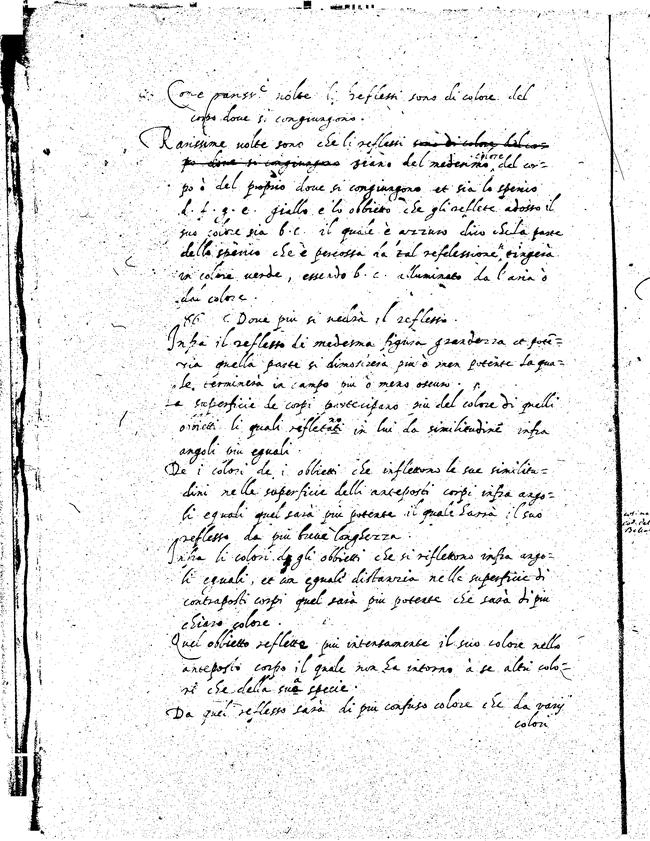 Come rariss.e uolte li reflessi sono di colore del
corpo doue si congiungono.
Rarissime uolte sono che li reflessi sono di colore del cor-
po doue si congiungono siano del medesimo colore del cor-
po ò del proprio doue si congiungono et sia lo sperico
d. f. g. e. giallo e lo obbietto che gli reflete adosso il
suo colore sia b. c. il quale è azzuro dico che la parte
dello sperico che è percossa da tal reflessione, tingerà
in colore uerde, essendo b. c. alluminato da l'aria ò
dal colore.
86 Doue più si uedrà il reflesso.
Infra il reflesso di medesma figura grandezza et poten=
tia quella parte si dimostrerà più ò men potente la qua=
le terminerà in campo più ò meno oscuro.
Le superficie de corpi partecipano più del colore di quelli
obietti li quali refletano in lui da similitudine infra
angoli più eguali.
De i colori de i obbietti che inflettono le sue similitu=
dini nelle superficie delli anteposti corpi infra ango=
li eguali quel sarà più potente il quale harrà il suo
reflesso da più breue longhezza.
Infra li colori de gli obbietti che si riflettono infra ango=
li eguali, et con equal distanzia nelle superficie di
contraposti corpi quel sarà più potente che sarà di più
chiaro colore.
Quel obbietto reflette più intensamente il suo colore nello
anteposto corpo il quale non ha intorno à se altri colo=
ri che della sua specie.
Da quel reflesso sarà di più confuso colore che da varij
colori